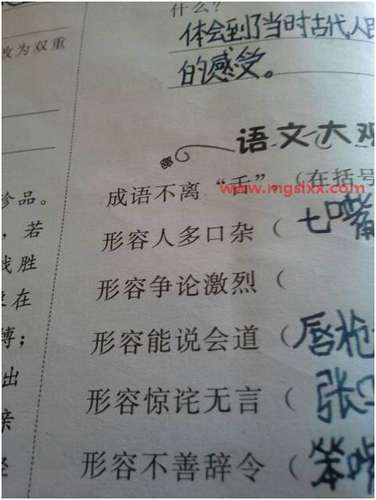 什么？
体会到了当时古代人民
的感受。
改为双重
语文大观
成语不离“舌”（在括号
www.mgslxx.com
形容人多口杂（七嘴
形容争论激烈（
形容能说会道（唇枪
形容惊诧无言（张口
形容不善辞令（笨嘴
珍品。
，若
战胜
在
博；
出
亲